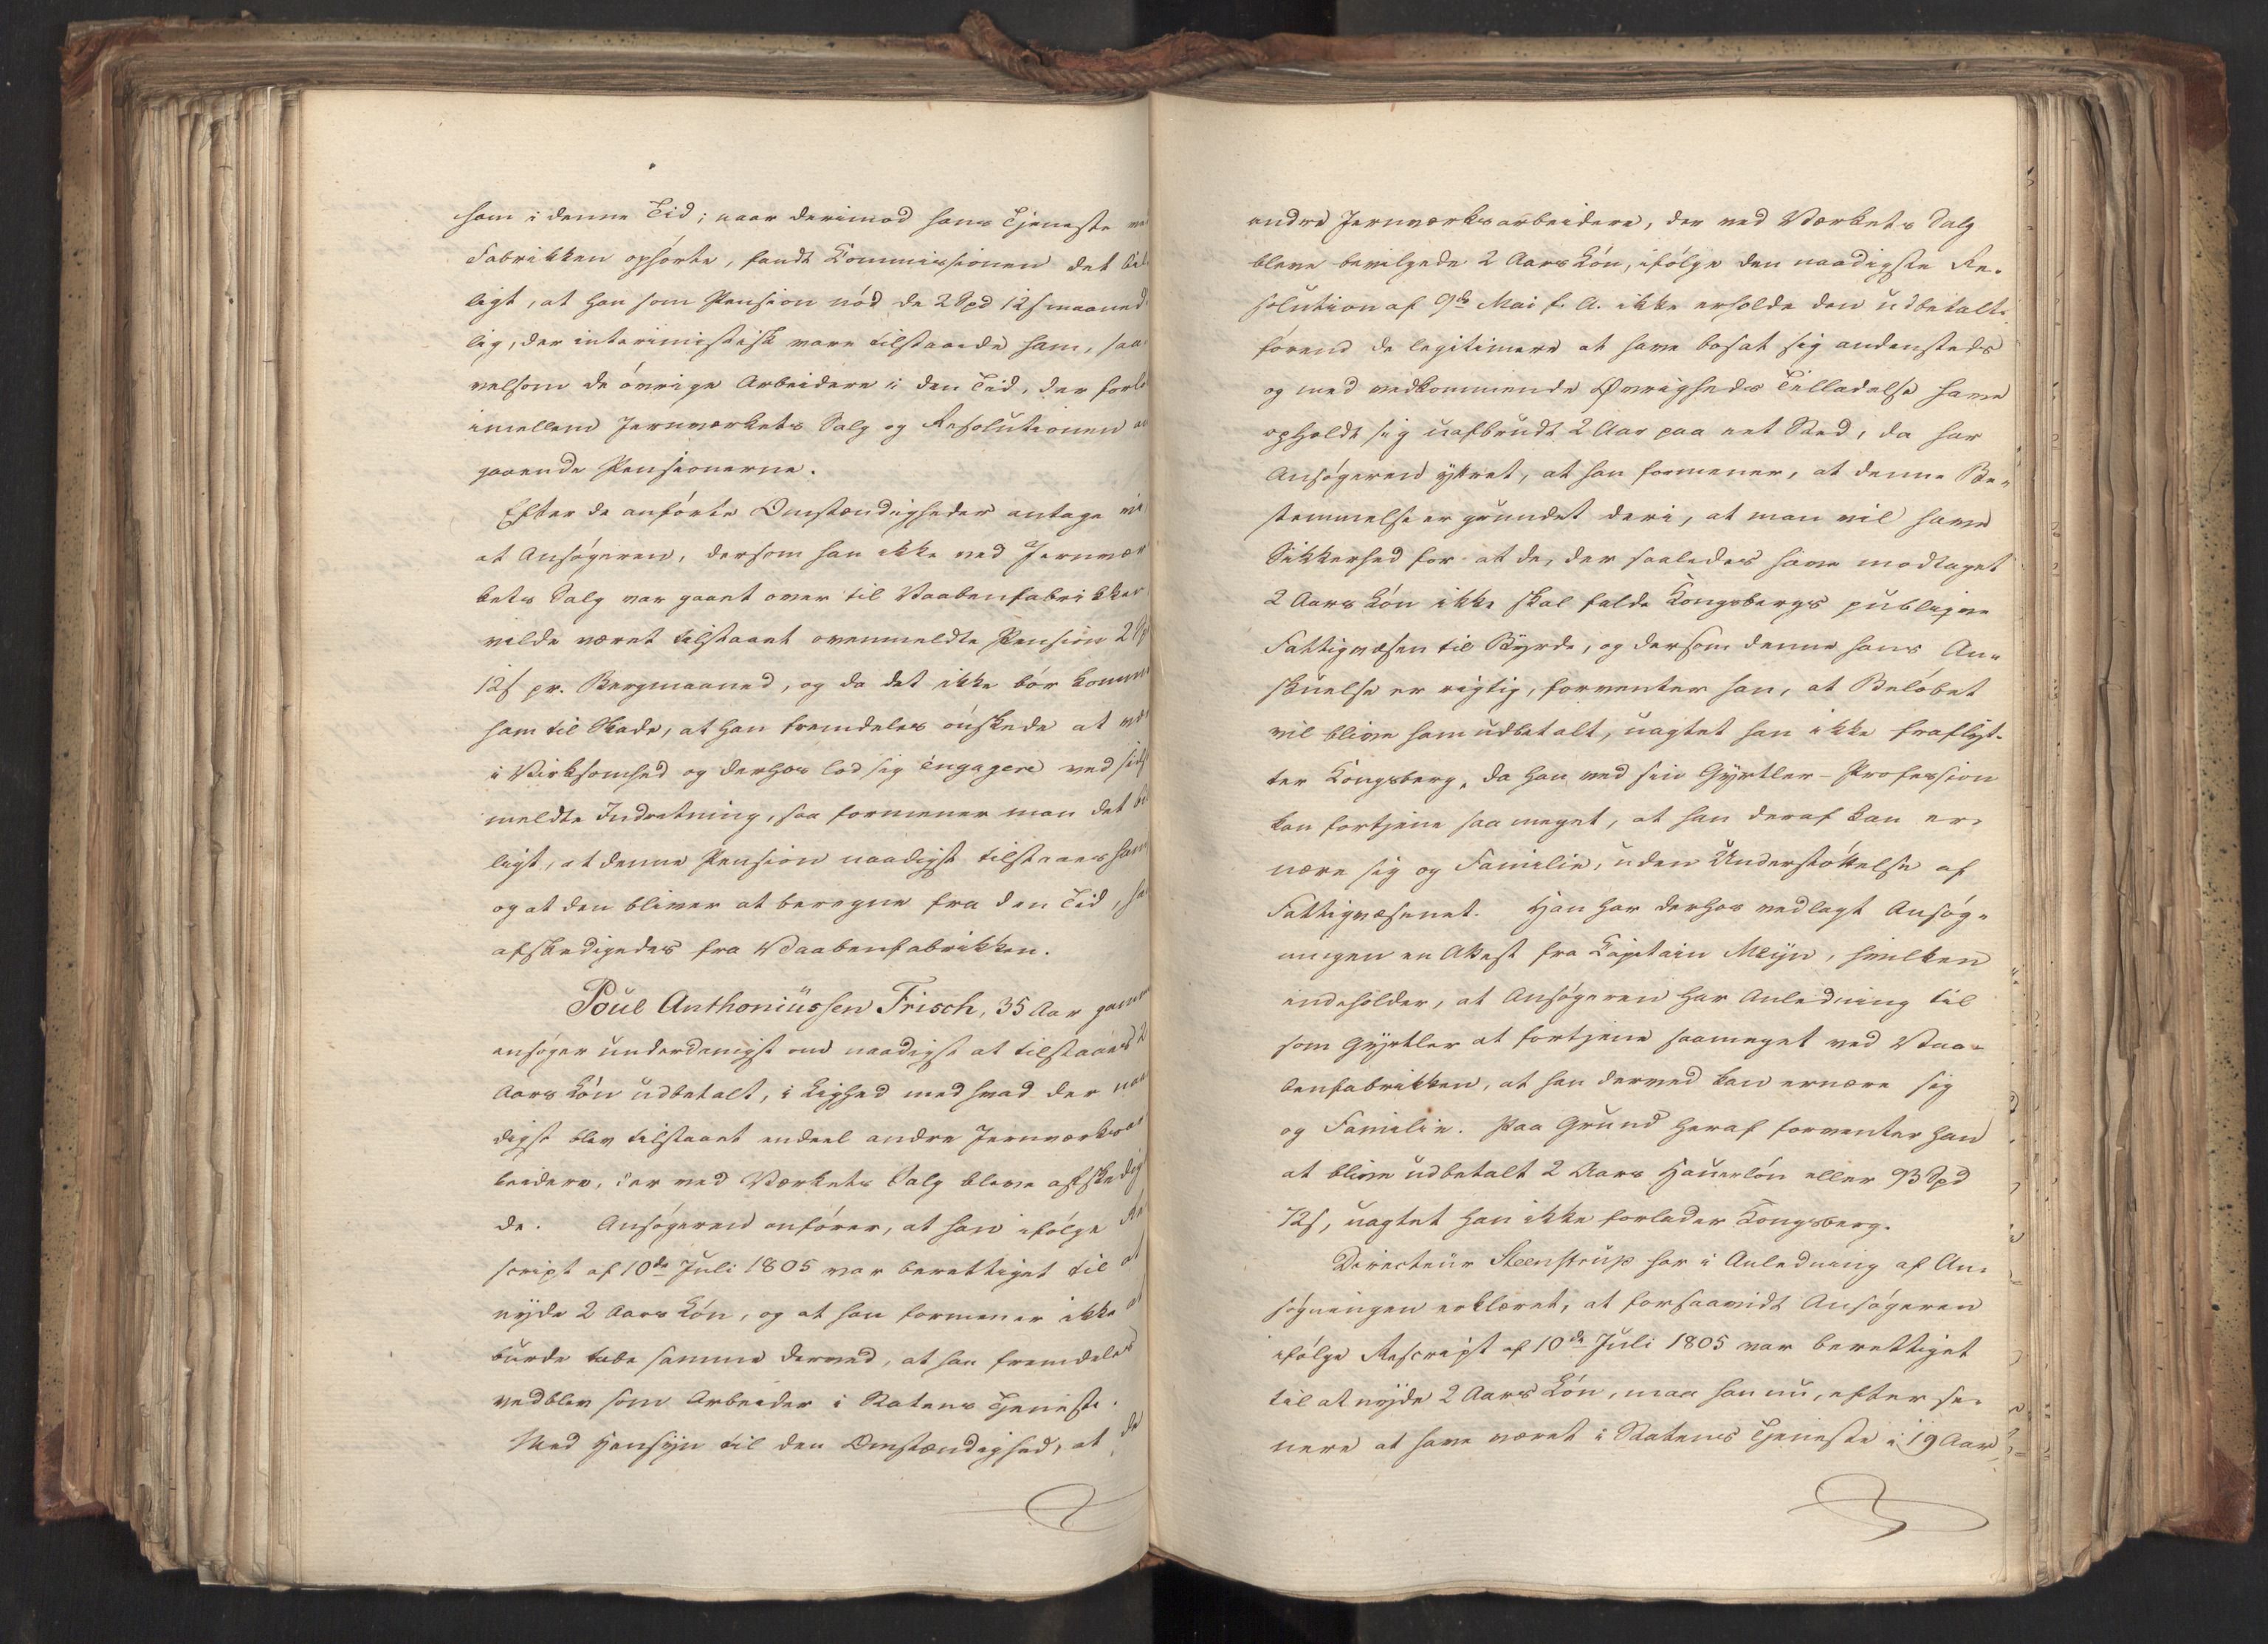 ham i denne Tid; naar derimod hans Tjeneste
Fabrikken ophørte, fandt Kommissionen det bil
ligt, at han som Pension nød de 2 Spd 12 s maaned
lig, der interimistisk vare tilstaaede ham, saa
velsom de øvrige Arbeidere i den Tid, der forløb
imellem Jernværkets Salg og Resolutionen an
gaaende Pensionerne.
Efter de anførte Omstændigheder antage vi,
at Ansøgeren, dersom han ikke ved Jernvær
kets Salg var gaaet over til Vaabenfabrikken
vilde været tilstaaet ovenmeldte Pension 2 Sp
12 s pr. Bergmaaned, og da det ikke bør komme
ham til Skade, at han fremdeles ønskede at være
i Virksomhed og derhos lod sig engagere ved sidst
meldte Indretning, saa formener man det bil
ligt, at denne Pension naadigst tilstaaes ham
og at den bliver at beregne fra den Tid, han
afskedigedes fra Vaabenfabrikken.
Poul Anthoniussen Frisch, 35 Aar gammel
ansøger underdanigst om naadigst at tilstaaes 2
Aars Løn udbetalt, i Lighed med hvad der naa
digst blev tilstaaet endeel andre Jernværksar
beidere, der ved Værkets Salg bleve afskedige
de. Ansøgeren anfører, at han ifølge Re
script af 10de Juli 1805 var berettiget til at
nyde 2 Aars Løn, og at han formener ikke at
burde tabe samme derved, at han fremdeles
vedblev som Arbeider i Statens Tjeneste.
Med Hensyn til den Omstændighed, at de
andre Jernværksarbeidere, der ved Værkets Salg
bleve bevilgede 2 Aars Løn, ifølge den naadigste Re-
solution af 9de Mai f. A. ikke erholde den udbetalt,
førend de legitimere at have bosat sig andensteds
og med vedkommende Øvrigheds Tilladelse have
opholdt sig uafbrudt 2 Aar paa eet Sted, da har
Ansøgeren yttret, at han formener, at denne Be-
stemmelse er grundet deri, at man vil have
Sikkerhed for at de, der saaledes have modtaget
2 Aars Løn ikke skal falde Kongsbergs publiqve
Fattigvæsen til Byrde, og dersom denne hans An-
skuelse er rigtig, forventer han, at Beløbet
vil blive ham udbetalt, uagtet han ikke fraflyt-
ter Kongsberg, da han ved sin Gyrtler-Profession
kan fortjene saa meget, at han deraf kan er-
nære sig og Familie, uden Understøttelse af
Fattigvæsenet. Han har derhos vedlagt Ansøg-
ningen en Attest fra Kapitain Meyn, hvilken
indeholder, at Ansøgeren har Anledning til
som Gyrtler at fortjene saameget ved Vaa-
benfabrikken, at han derved kan ernære sig
og Familie. Paa Grund heraf forventer han
at blive udbetalt 2 Aars Hauerløn eller 93 Spd
72 s, uagtet han ikke forlader Kongsberg.
Directeur Steenstrup har i Anledning af An-
søgningen erklæret, at forsaavidt Ansøgeren
ifølge Rescript af 10de Juli 1805 var berettiget
til at nyde 2 Aars Løn, maa han nu, efter se-
nere at have været i Statens Tjeneste i 19 Aar